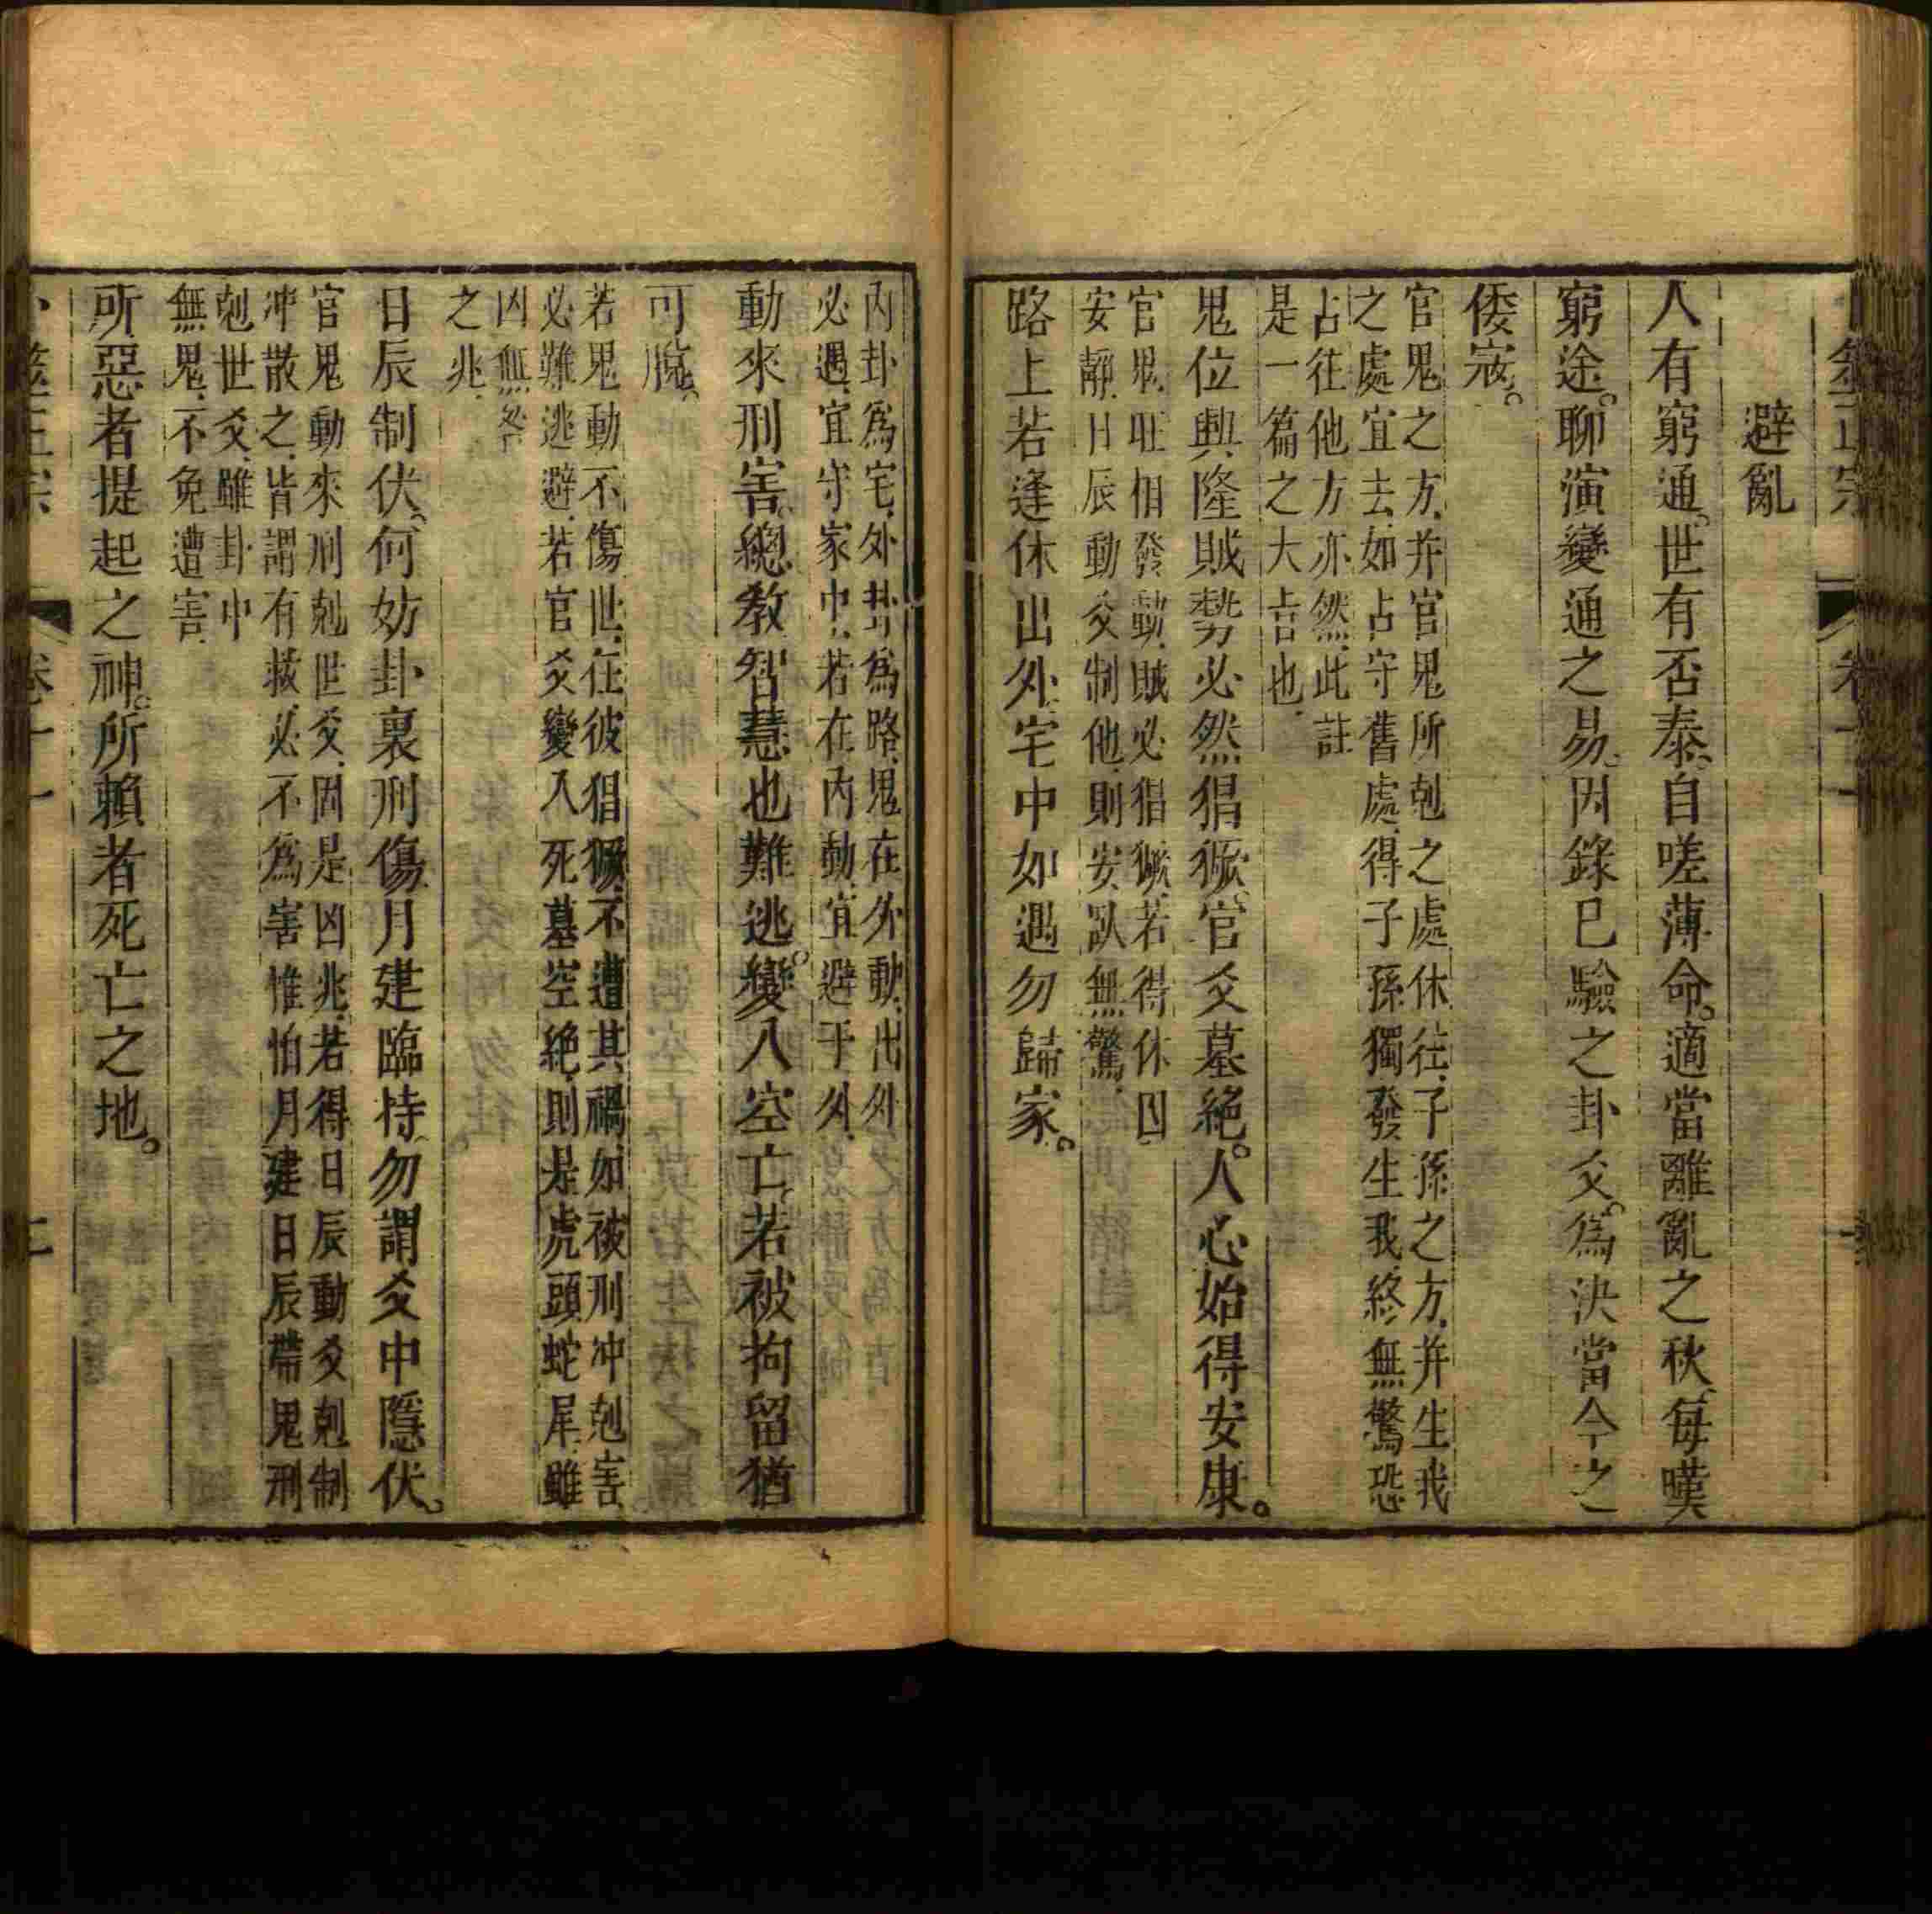 避亂
人有窮通。世有否泰。自嗟薄命。適當離亂之秋。每嘆
窮途。聊演變通之易。因錄已驗之卦爻。為決當今之
倭寇。
官鬼之方、并官鬼所剋之處休往、子孫之方、并生我
之處宜去、如占守舊處、得子孫獨發生我、終無驚恐
占往他方亦然、此註
是一篇之大吉也、
鬼位興隆賊勢必然猖獗。官爻墓絕。人心始得安康。
官鬼旺相發動、賊必猖獗、若得休囚
安靜、日辰動爻制他、則安臥無驚、
路上若逢休出外。宅中如遇勿歸家。
內卦為宅、外卦為路、鬼在外動、出外
必遇、宜守家中、若在內動、宜避于外、
動來刑害。總教智慧也難逃。變入空亡。若被拘留猶
可脫。
若鬼動不傷世、在彼猖獗、不遭其禍、如被刑冲剋害、
必難逃避、若官爻變入死墓空絕、則是虎頭蛇尾、雖
凶無咎
之兆、
日辰制伏。何妨卦裏刑傷。月建臨持。勿謂爻中隱伏。
官鬼動來刑剋世爻、固是凶兆、若得日辰動爻剋制
冲散之、皆謂有救、必不為害、惟怕月建日辰帶鬼刑
剋世爻、雖卦中
無鬼、不免遭害、
所惡者提起之神。所賴者死亡之地。
卷十一